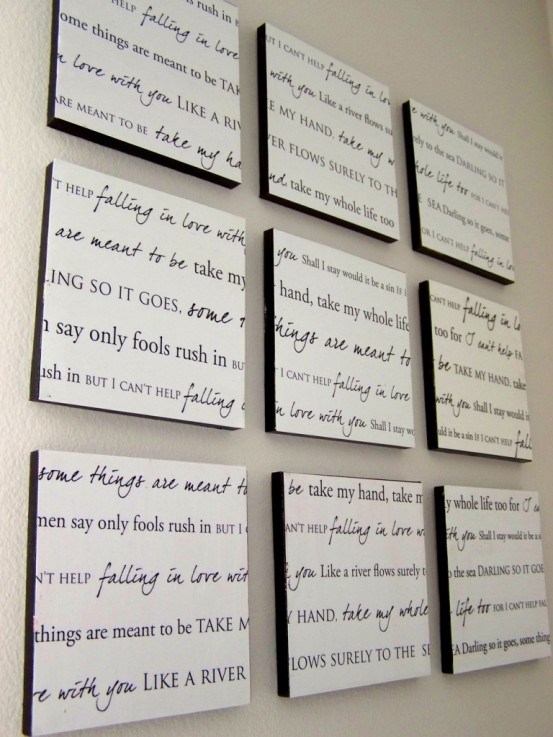 HELP falling in love
ome things are meant to be TAK
n love with you LIKE A RIV
ARE MEANT TO BE take my ha
UT I CAN'T HELP falling in lov
with you Like a river flows su
E MY HAND, take my w
ER FLOWS SURELY TO TH
nd, take my whole life too
e with you Shall I stay would it
ely to the sea DARLING SO IT
hole life too FOR I CAN'T HE
E SEA Darling so it goes, some
OR I CAN'T HELP falling in lo
'T HELP falling in love with
are meant to be take my
ING SO IT GOES, some t
n say only fools rush in BU
ush in BUT I CAN'T HELP falling
you Shall I stay would it be a sin IF I
hand, take my whole life
things are meant to
T I CAN'T HELP falling in love
n love with you Shall I stay wo
CAN'T HELP falling in lo
too for I can't help FA
be TAKE MY HAND, take
with you Shall I stay would it
uld it be a sin IF I CAN'T HELP fall
some things are meant to
men say only fools rush in BUT I
N'T HELP falling in love wit
things are meant to be TAKE M
e with you LIKE A RIVER
be take my hand, take m
AN'T HELP falling in love w
you Like a river flows surely t
Y HAND, take my whole
FLOWS SURELY TO THE SE
y whole life too for I
ith you Shall I stay would it be a si
o the sea DARLING SO IT GOE
life too FOR I CAN'T HELP FAL
SEA Darling so it goes, some thing